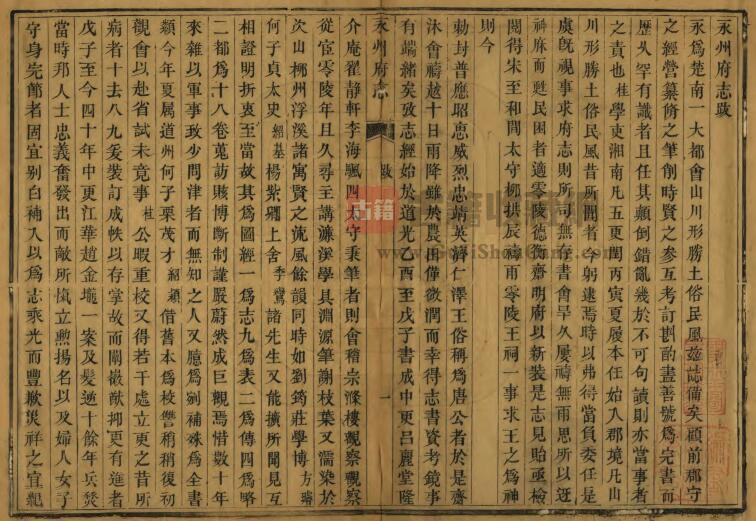 永州府志跋
永爲楚南一大都會山川形勝土俗民風茲誌備矣顧前郡守
之經營纂脩之筆創時賢之參互考訂斟酌盡善號爲完書而
歷久罕有識者且任其顛倒錯亂幾於不可句讀則亦當事者
之責也桂學吏湘南凡五更閏丙寅夏履本任始入郡境凡山
川形勝土俗民風昔所聞者今躬逮焉時以弗得當負委任是
虞旣視事求府志則所司無存書會旱久屢禱無雨思所以迓
神庥而甦民困者適零陵德衡齋明府以新裝是志見貽亟檢
閱得朱至和間太守柳拱辰禱雨零陵王祠一事求王之爲神
則今
勅封普應昭惠威烈忠靖英濟仁澤王俗稱爲唐公者於是齋
沐會禱越十日雨降雖於農田僅微潤而幸得志書資考鏡事
有端緒矣攷志經始於道光乙酉至戊子書成中更呂麗堂隆
永州府志 跋 一
介庵翟靜軒李海颿四太守秉筆者則會稽宗滌樓觀察觀察
從宦零陵年且久尋主講濂溪學具淵源筆謝枝葉又濡染於
次山柳州浮溪諸寓賢之流風餘韻同時如劉筠莊學博方璿
何子貞太史紹基楊紫卿上舍季鸞諸先生又能擴所聞見互
相證明折衷至當故其爲圖經一爲志九爲表二爲傳四爲略
二都爲十八卷蒐訪賅博斷制謹嚴蔚然成巨觀焉惜數十年
來雜以軍事政少問津者而無知之人又慮爲剜補殊爲全書
纇今年夏属道州何子栗茂才紹頴借舊本爲校讐稍稍復初
觀會以赴省試未竟事桂公暇重校又得若干處立更之昔所
病者十去八九爰裝訂成帙以存掌故而闡嚴猷抑更有進者
戊子至今四十年中更江華趙金壠一案及髮逆十餘年兵燹
當時邦人士忠義奮發出而敵所愾立勲揚名以及婦人女子
守身完節者固宜別白補入以爲志乘光而豐歉災祥之宜紀
古籍
www.GujiShouCang.com